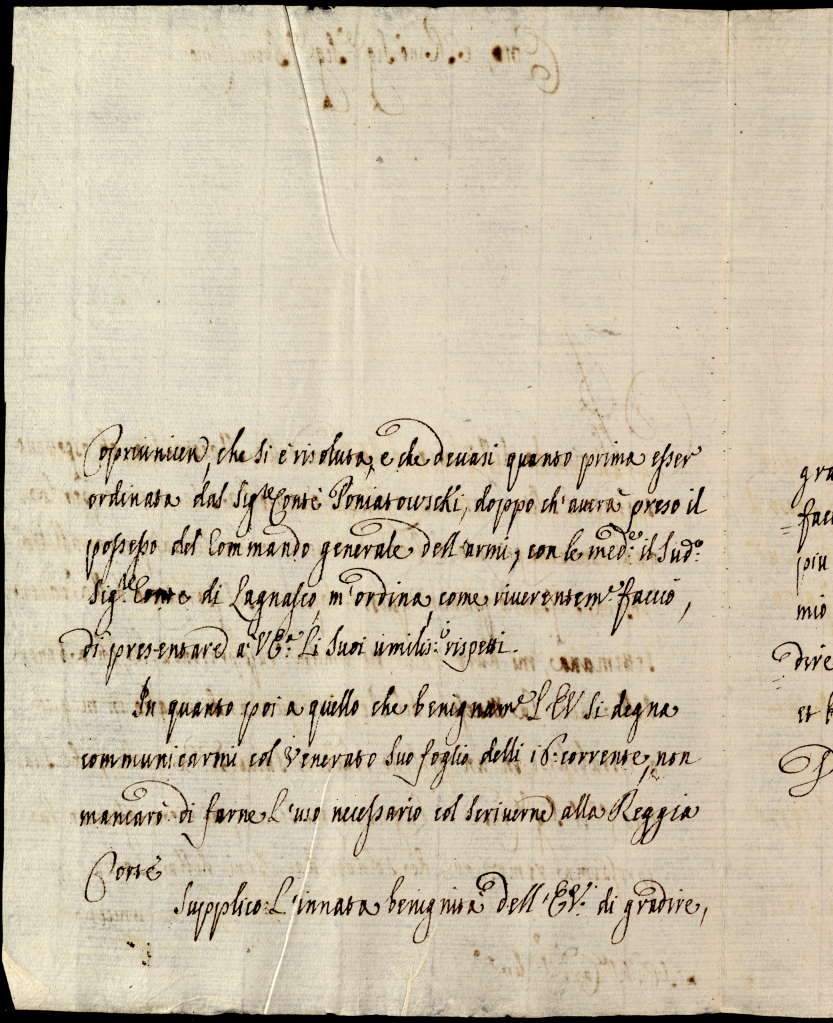 che si è risoluta, e che devasi quanto prima esser
ordinata dal Sig.re Conte Poniatowscki, doppo ch'averà preso il
possesso del Commando generale dell'armi, con le med.e il Sud.o
Sig.re Conte di Lagnasco, m'ordina come riverentem.e faccio,
di presentare a V.E.a Li Suoi umilis.i rispetti.
In quanto poi a quello che benignam.e L'EV si degna
communicarmi col Venerato Suo foglio delli 16. corrente, non
mancarò di farne L'uso necessario col scriverne alla Reggia
Corte
Supplico L'innata benignità dell'EV. di gradire,
gra
piu
mio
dire
et